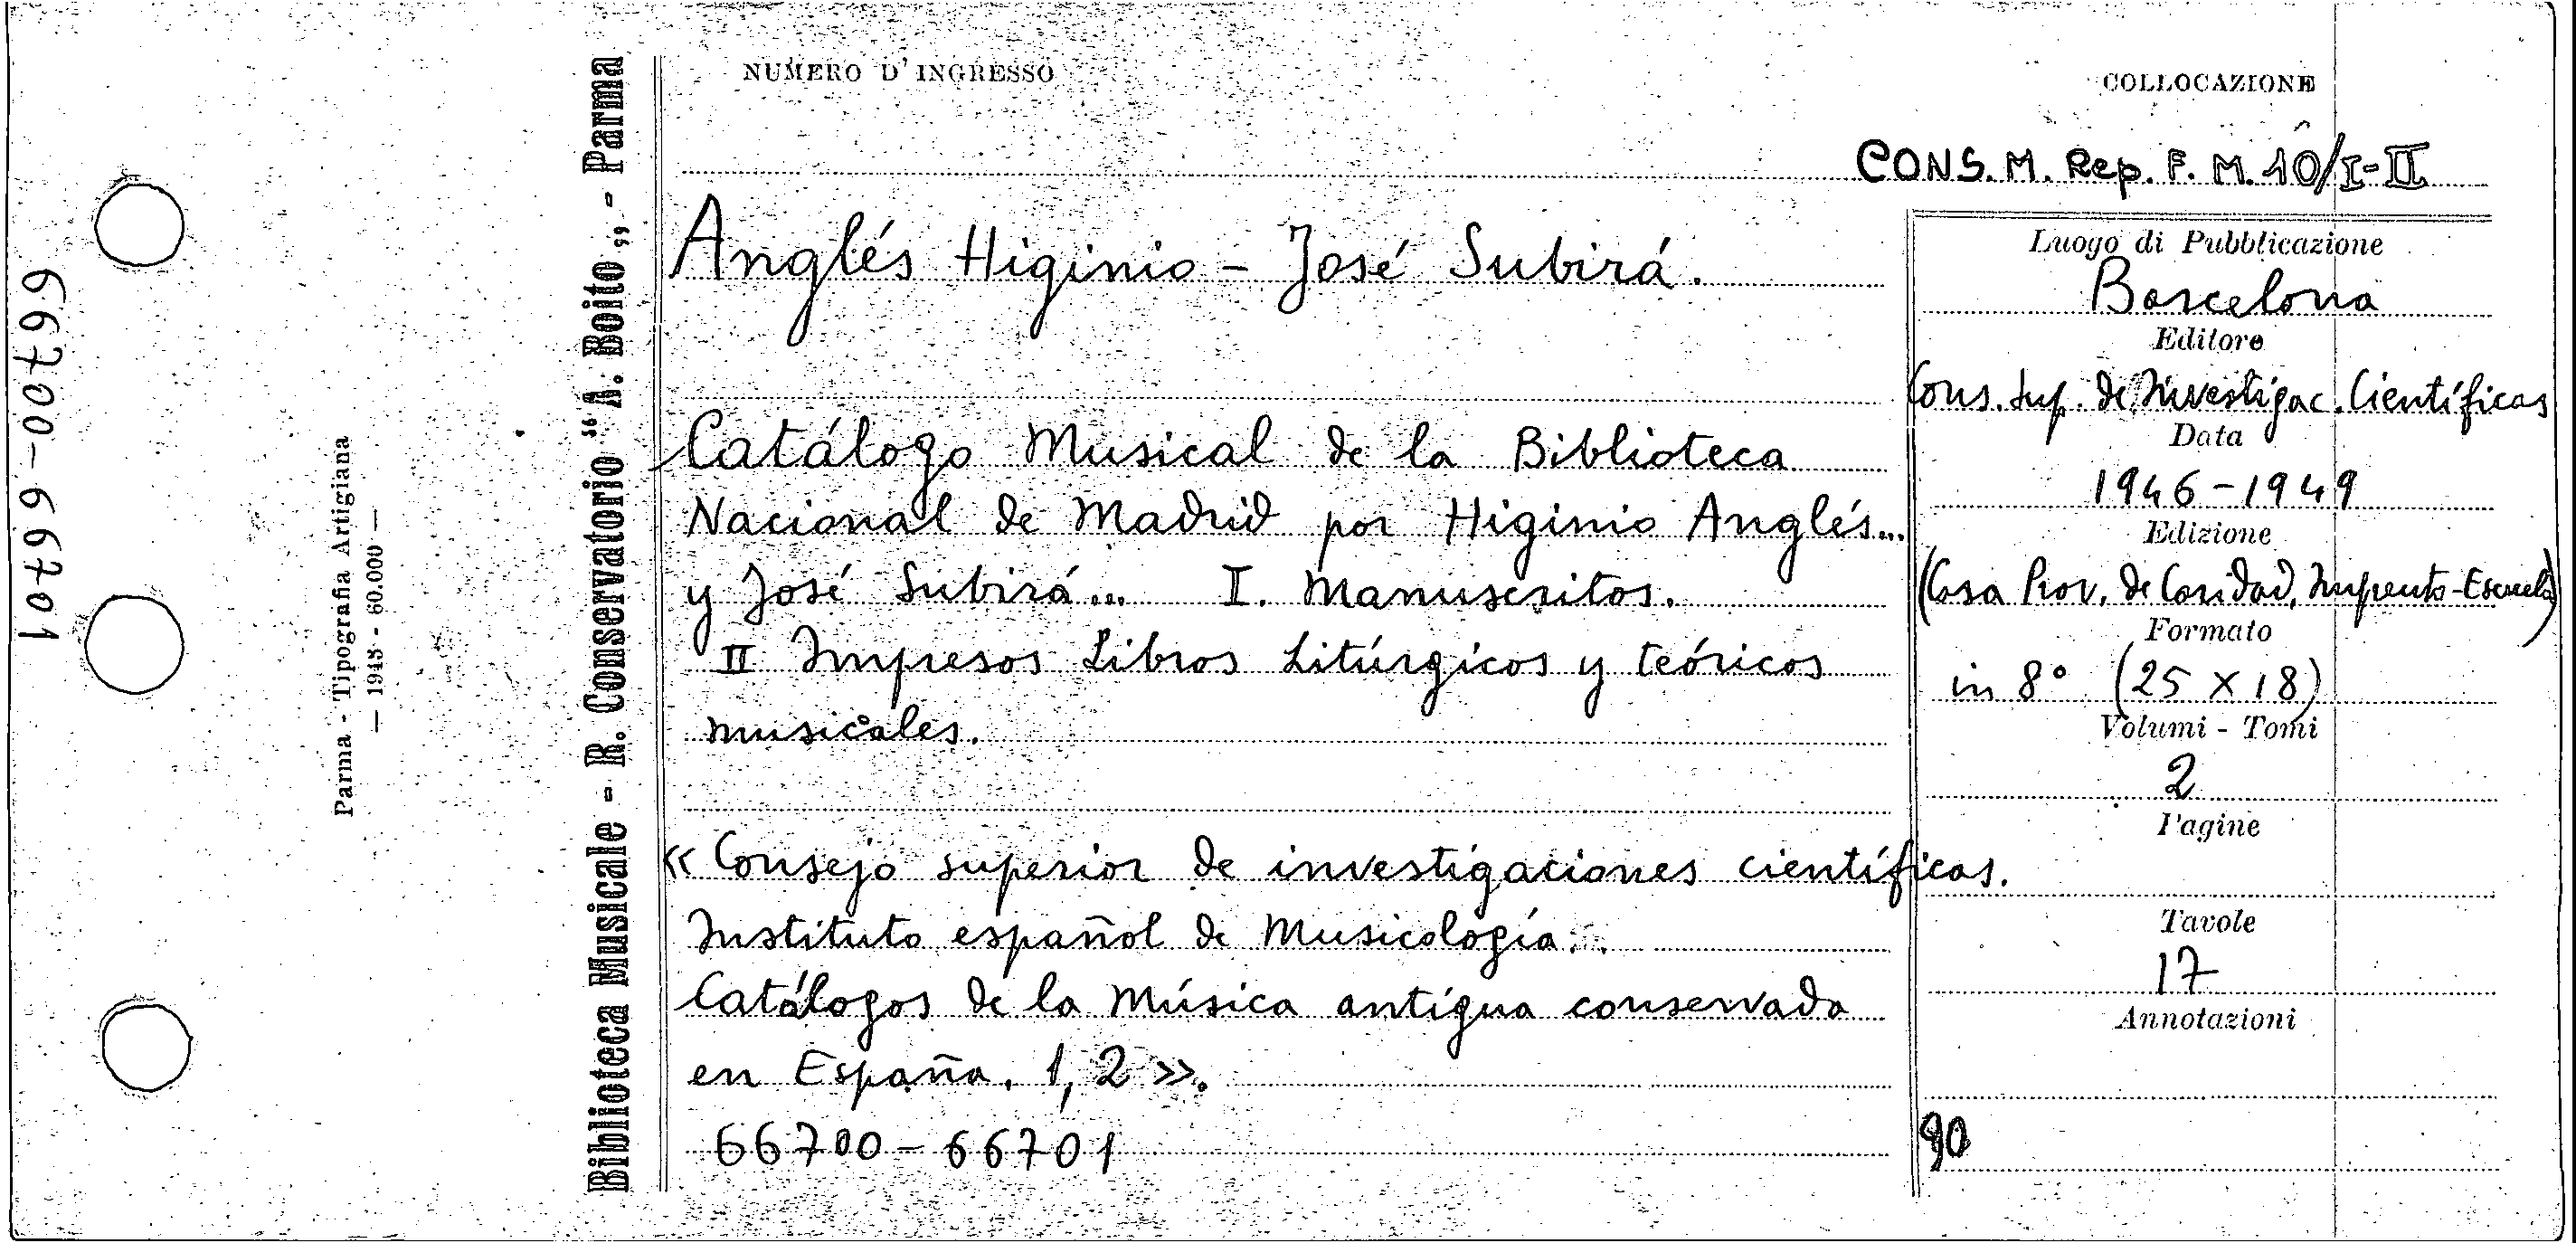 66700-66701
Parma - Tipografia Artigiana
— 1943 - 60.000 —
Biblioteca Musicale - R. Conservatorio “A. Boito„ - Parma
NUMERO D'INGRESSO
COLLOCAZIONE
CONS. M. Rep. F. M. 10/I-II
Anglés Higinio - José Subirá.
Catálogo Musical de la Biblioteca
Nacional de Madrid por Higinio Anglés...
y José Subirá... I. Manuscritos.
II Impresos Libros Litúrgicos y teóricos
musicales.
« Consejo superior de investigaciones científicas.
Instituto español de Musicología.
Catálogos de la Música antígua conservada
en España. 1, 2 ».
66700-66701
Luogo di Pubblicazione
Barcelona
Editore
Cons. Sup. de Investigac. Científicas
Data
1946-1949
Edizione
(Casa Prov. de Caridad, Imprenta-Escuela)
Formato
in 8° (25 x 18)
Volumi - Tomi
2
Pagine
Tavole
17
Annotazioni
90